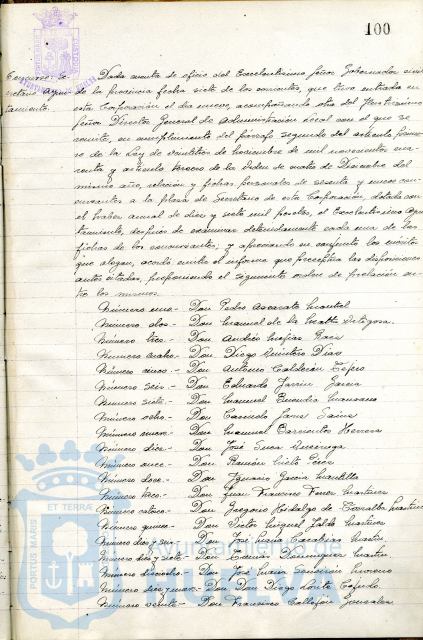 100
Concurso Se-
cretario Ayun-
tamiento.
Dada cuenta de oficio del Excelentísimo Señor Gobernador civil
de la provincia fecha siete de los corrientes, que tuvo entrada en
esta Corporación el día nueve, acompañando otro del Ilustrísimo
Señor Director General de Administración Local con el que se
remite, en cumplimiento del párrafo segundo del artículo prime-
ro de la Ley de veintitrés de noviembre de mil novecientos cua-
renta y artículo tercero de la Orden de cuatro de Diciembre del
mismo año, relación y fichas personales de sesenta y cinco con-
cursantes a la plaza de Secretario de esta Corporación, dotada con
el haber anual de diez y siete mil pesetas, el Excelentísimo Ayun-
tamiento, después de examinar detenidamente cada una de las
fichas de los concursantes; y apreciando en conjunto los méritos
que alegan, acordó emitir el informe que preceptúa las disposiciones
antes citadas, proponiendo el siguiente orden de prelación en-
tre los mismos.
Número uno.- Don Pedro
Número dos.- Don Manuel de la Matta Ortigosa.
Número tres.- Don Andrés Mejías
Número cuatro.- Don Diego Quintero Díaz
Número cinco.- Don Antonio Calderón
Número seis.- Don Eduardo García
Número siete.- Don Manuel
Número ocho.- Don
Número nueve.- Don Manuel Barrientos Herrera
Número diez.- Don José
Número once.- Don Ramón Nieto
Número doce.- Don Ignacio García
Número trece.- Don Juan Francisco Martínez
Número catorce.- Don Gregorio Hidalgo de Torralba Martínez
Número quince.- Don Víctor Miguel Martínez
Número diez y seis.- Don José María
Número diez y siete.- Don Tomás Domínguez Martín
Número dieciocho.- Don José María Moreno
Número diez y nueve.- Don Diego
Número veinte.- Don Francisco González
PORTUS MARIS
ET TERRAE
Ayuntamiento
HUELVA